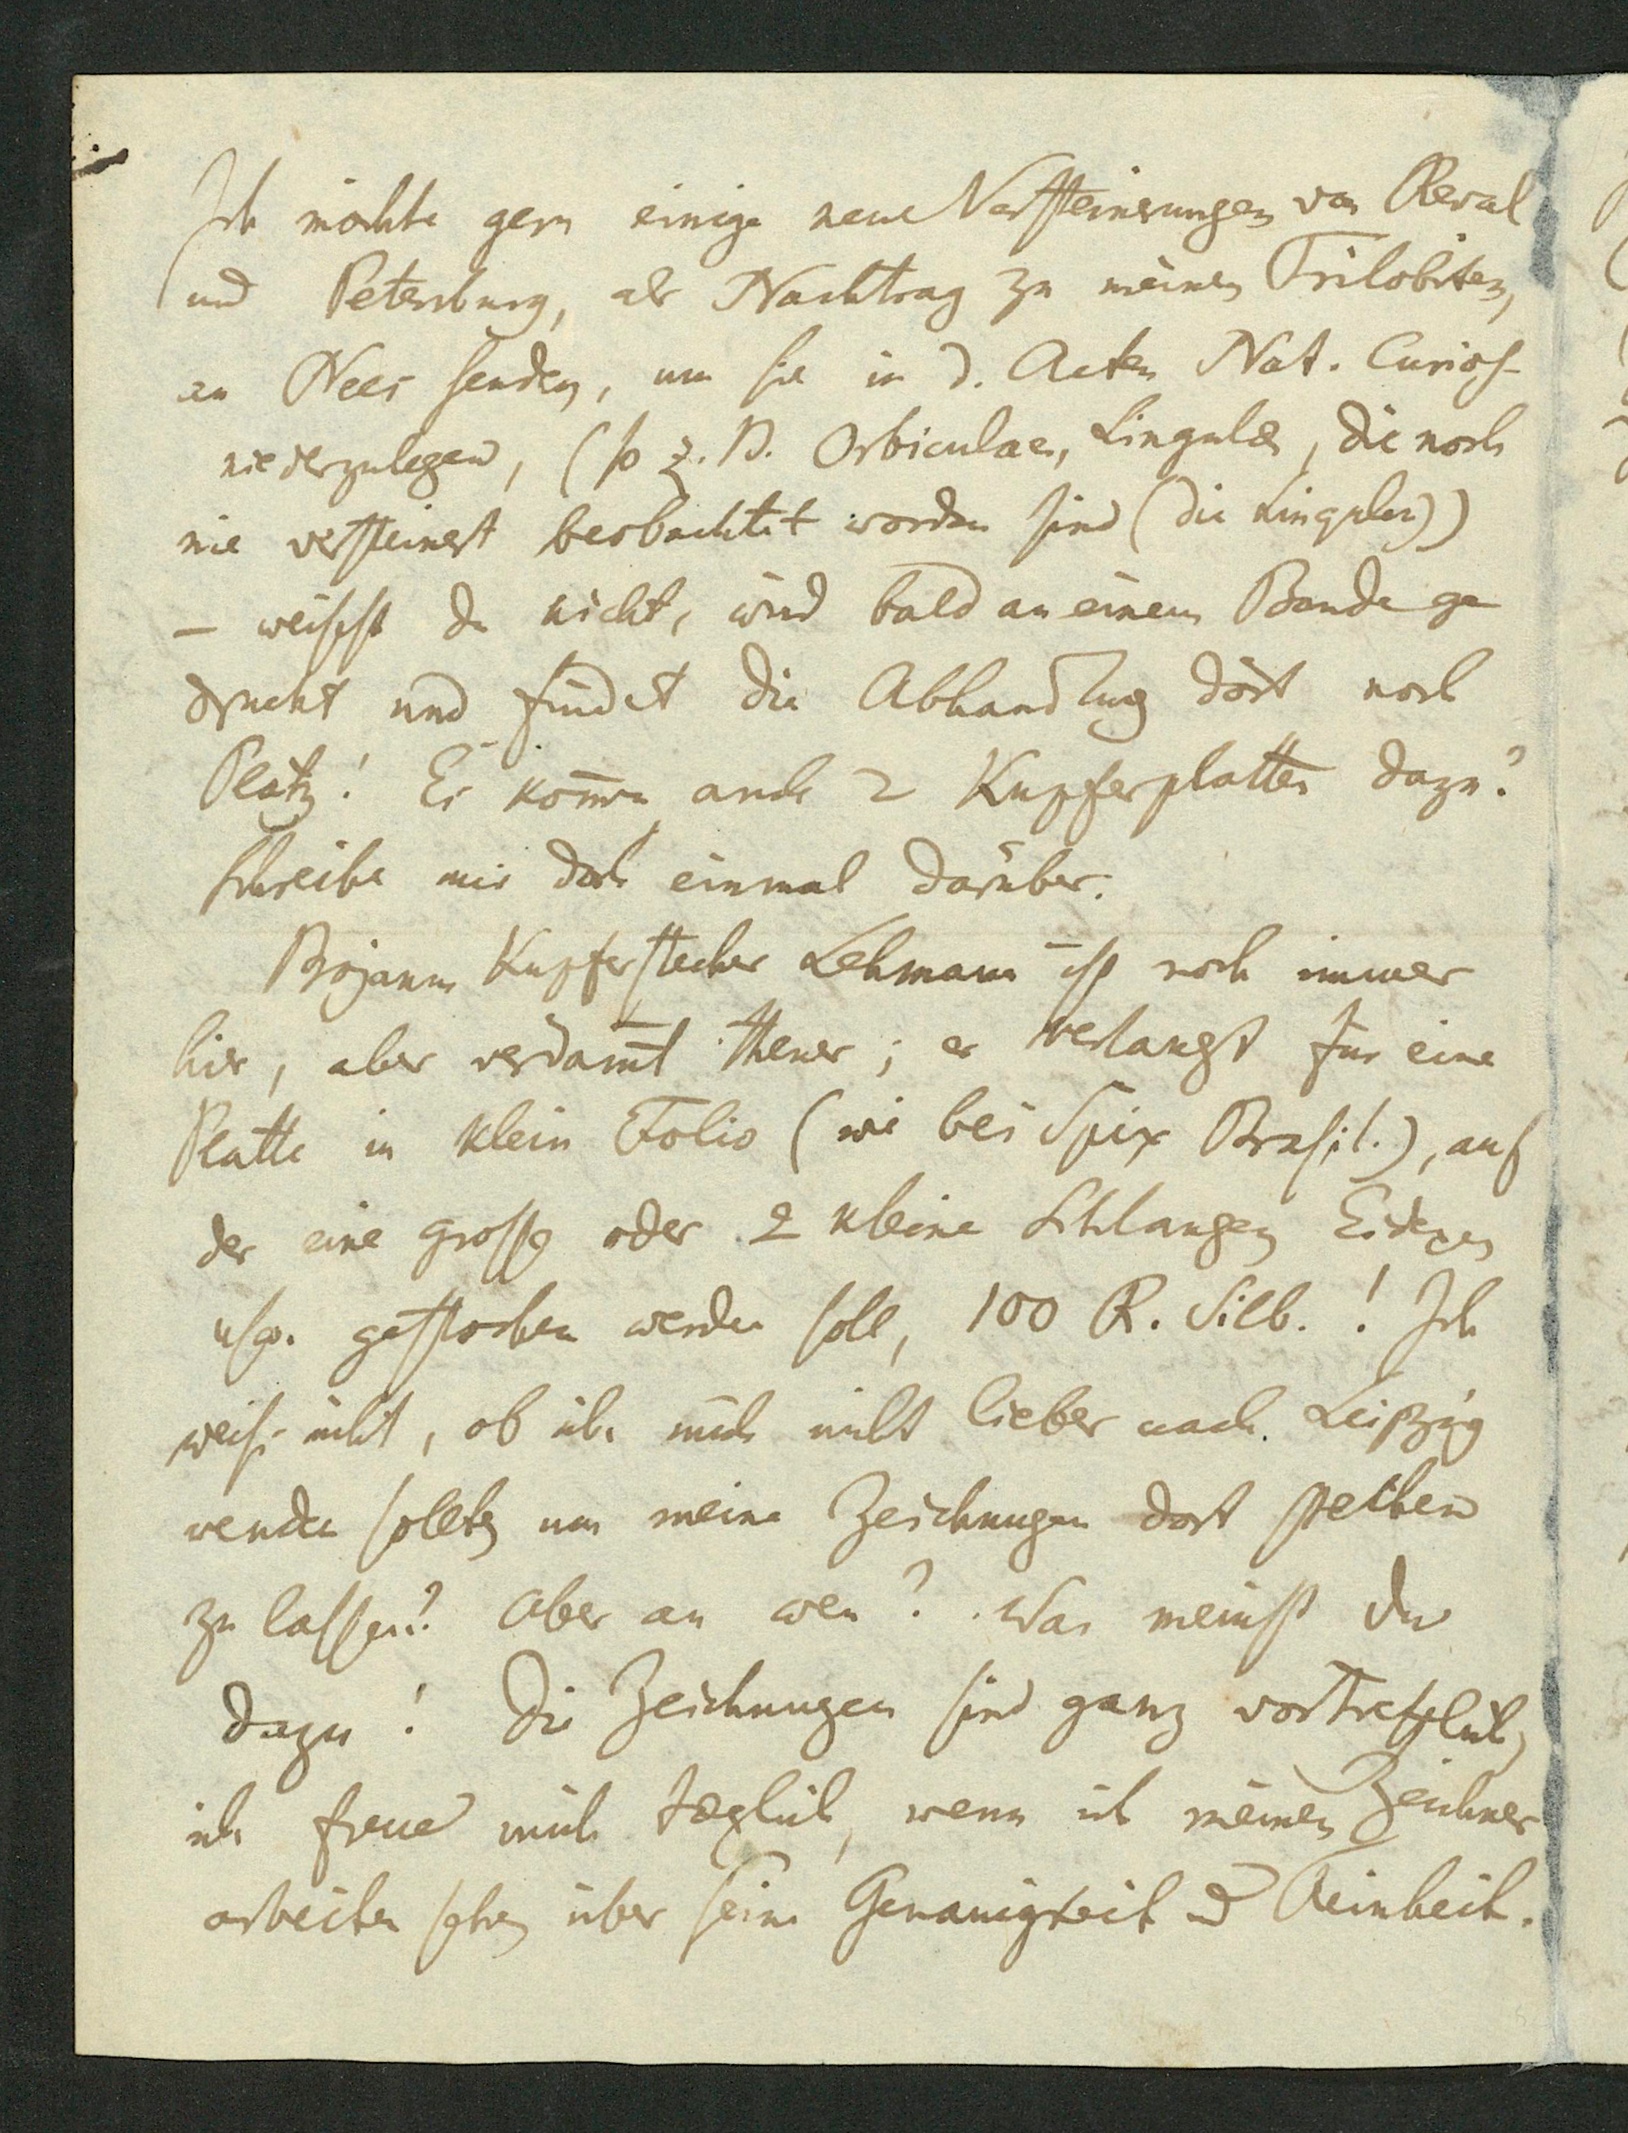 Ich möchte gern einige neue Versteinerungen von Reval
und Petersburg, als Nachtrag zu meinen Trilobiten,
an Nees senden, um sie in d. Acten Nat. Curios-
niederzulegen, (so z. B. Orbiculae, Lingulae, die noch
nie versteinert beobachtet worden sind (die Lingulen))
– weisst du nicht, wird bald an einem Bande ge
druckt und findet die Abhandlung dort noch
Platz! Es kom̄en auch 2 Kupferplatten dazu?
schreibe mir doch einmal darüber.
Bojanus Kupferstecher Lehmann ist noch immer
hier, aber verdam̄t theuer; er verlangt für eine
Platte in klein Folio (wie bei Spix Brasil.), auf
der eine grosse oder 2 kleine Schlangen Eidexen
usw. gestochen werden soll, 100 R. Silb.! Ich
weiss nicht, ob ich mich nicht lieber nach Leipzig
wenden sollte, um meine Zeichnungen dort stechen
zu lassen? Aber an wen? Was meinst du
dazu! Die Zeichnungen sind ganz vortrefflich,
ich freue mich taeglich, wenn ich meinen Zeichner
arbeiten sehe, über seine Genauigkeit u Reinheit.